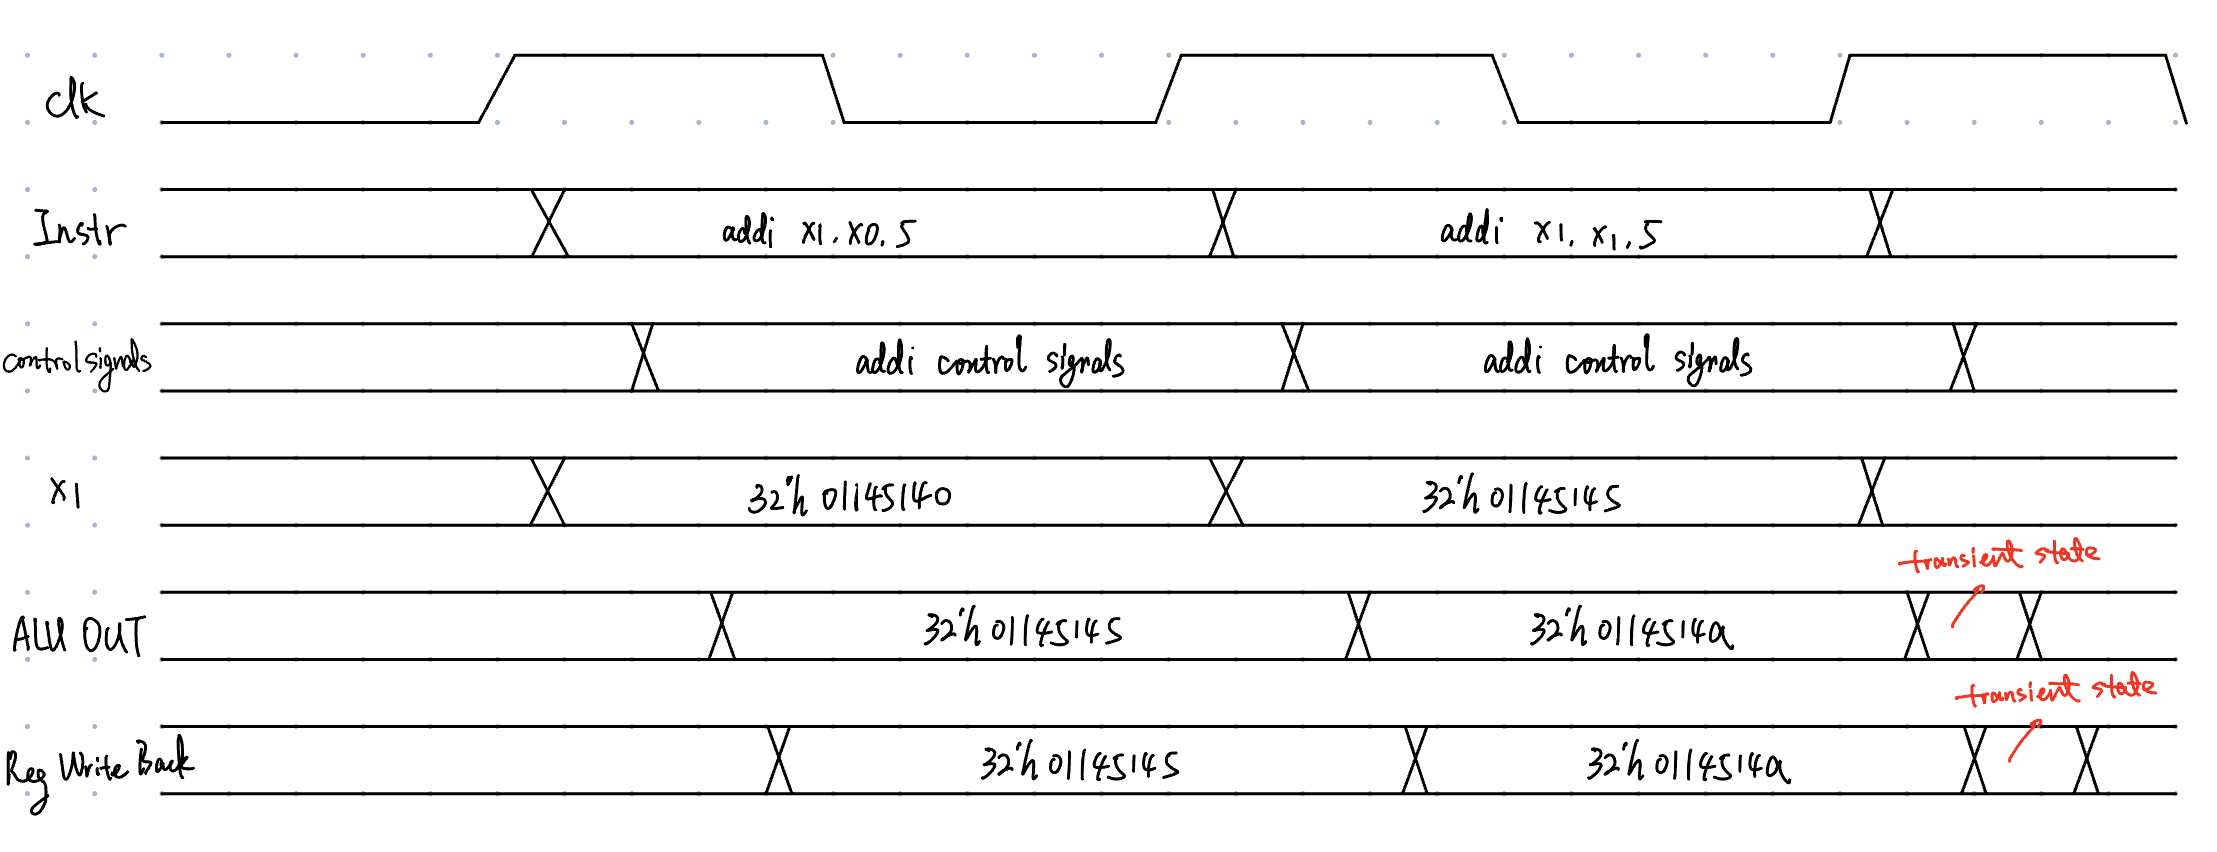 clk
Instr
addi x1, x0, 5
addi x1, x1, 5
control signals
addi control signals
addi control signals
x1
32'h 01145140
32'h 01145145
transient state
ALU OUT
32'h 01145145
32'h 0114514a
transient state
Reg Write Back
32'h 01145145
32'h 0114514a